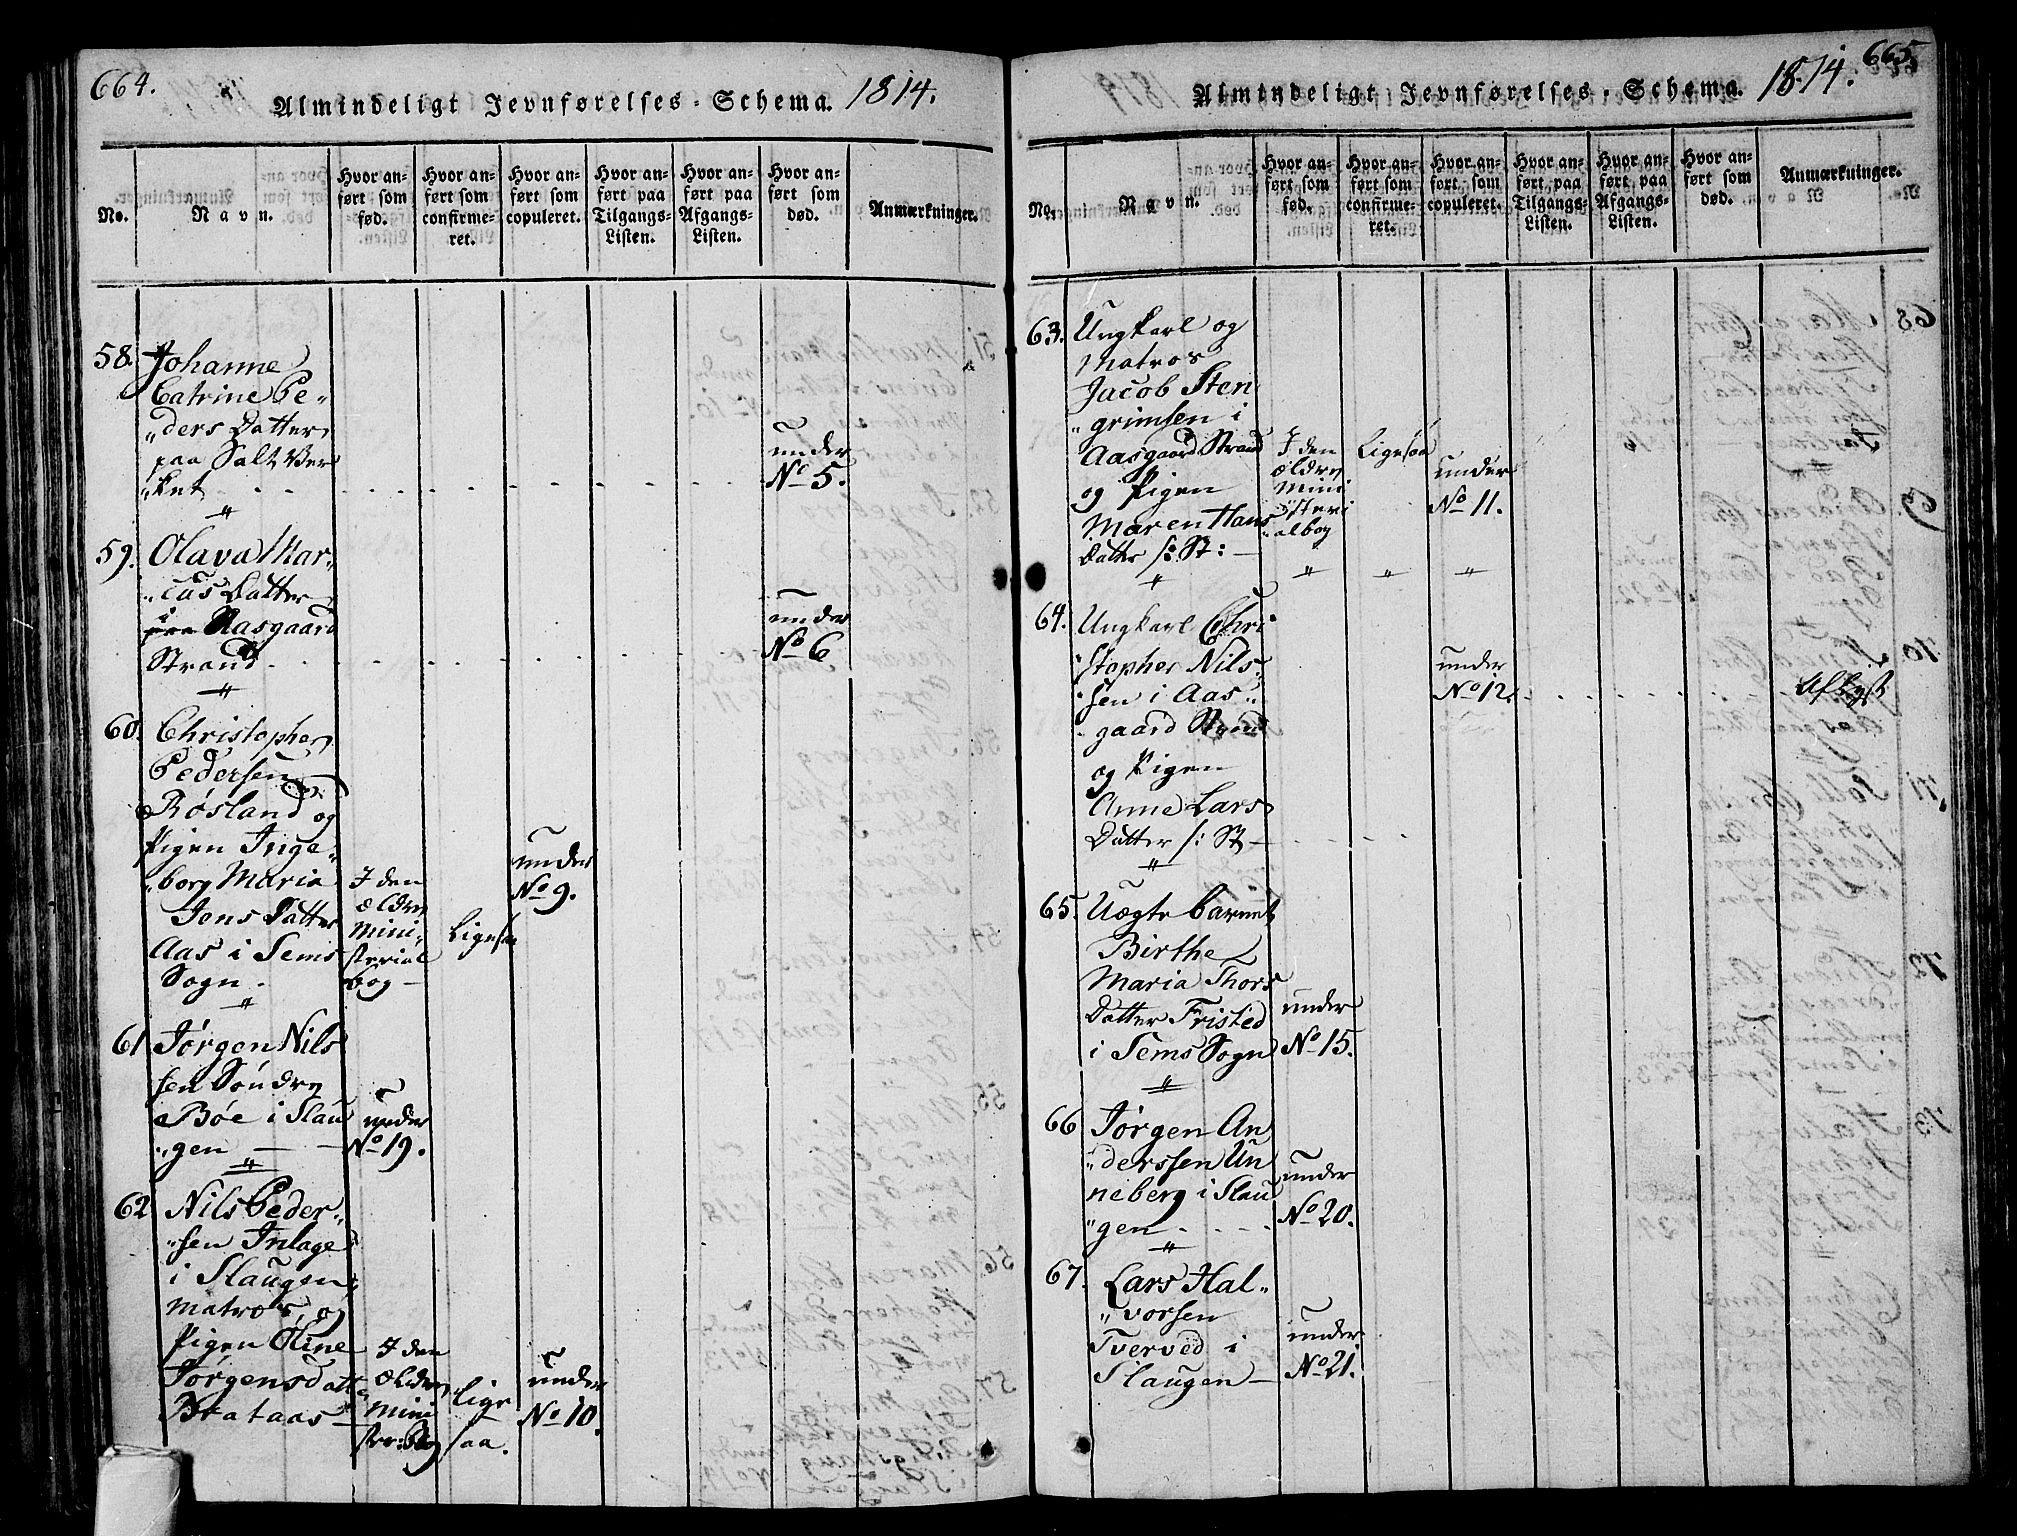 664.
Almindeligt Jevnførelses-Schema. 1814.
No.
Navn.
Hvor an-
ført som
fød.
Hvor an-
ført som
confirme-
ret.
Hvor an-
ført som
copuleret.
Hvor an-
ført paa
Tilgangs-
Listen.
Hvor an-
ført paa
Afgangs-
Listen.
Hvor an-
ført som
død.
Anmærkninger.
58. Johanne
Catrine Pe-
„ders Datter
paa Salt Ver
„ket
under
No 5.
59. Olava Mar-
„cus Datter
i Aasgaard
Strand
under
No 6
60. Christopher
Pedersen
Røsland og
Pigen Inge-
„borg Maria
Jens Datter
Aas i Sems
Sogn.
I den
ældre
Mini-
sterial
bog
Ligesaa
under
No 9.
61 Jørgen Nils
sen Søndre
Bøe i Slau
„gen
under
No 19.
62 Nils Peder-
„sen Inlage
i Slaugen
Matros, og
Pigen Oline
Jørgensdatter
Brataas
I den
ældre
Mini
ster: Bog
lige
saa.
under
No 10.
665.
Almindeligt Jevnførelses-Schema. 1814.
No.
Navn.
Hvor an-
ført som
fød.
Hvor an-
ført som
confirme-
ret.
Hvor an-
ført som
copuleret.
Hvor an-
ført paa
Tilgangs-
Listen.
Hvor an-
ført paa
Afgangs-
Listen.
Hvor an-
ført som
død.
Anmærkninger.
63. Ungkarl og
Matros
Jacob Sten
„grimsen i
Aasgaard Strand
og Pigen
Maren Hans
Datter /: St:
I den
ældre
Mini
steri
albog
Ligesaa
under
No 11.
64. Ungkarl Chri
„stopher Nils-
„sen i Aas-
gaard Strand
og Pigen
Anne Lars
Datter /: St
under
No 12.
Aflyst
65. Uægte barnet
Birthe
Maria Thors
Datter Fristed
i Sems Sogn
under
No 15.
66 Jørgen An
„derssen Un
neberg i Slau
„gen
under
No 20.
67. Lars Hal-
„vorsen
Tverved i
Slaugen
under
No 21.